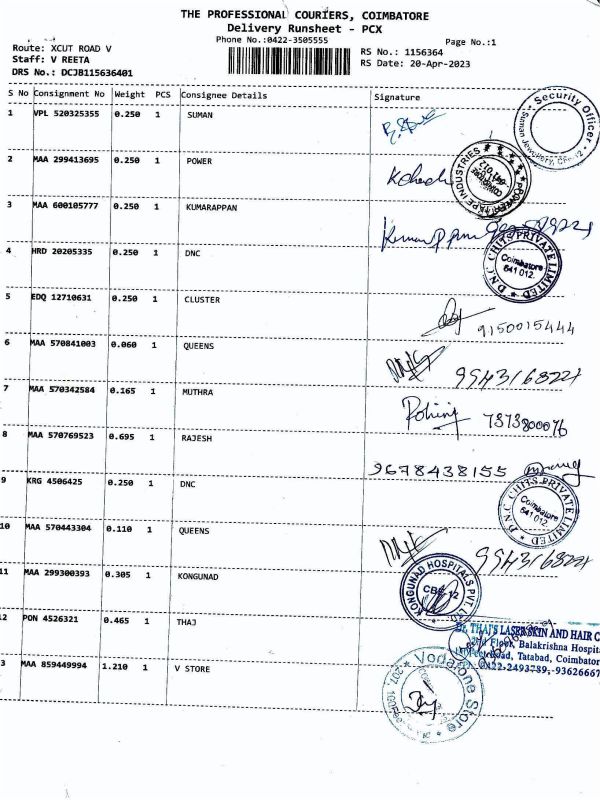 THE PROFESSIONAL COURIERS, COIMBATORE
Delivery Runsheet - PCX
Phone No.:0422-3505555
Page No.:1
Route: XCUT ROAD V
Staff: V REETA
DRS No.: DCJB115636401
RS No.: 1156364
RS Date: 20-Apr-2023
S No Consignment No Weight PCS Consignee Details Signature
1 VPL 520325355 0.250 1 SUMAN
Security Officer
Suman Jewellery, CBE-12
2 MAA 299413695 0.250 1 POWER
INDUSTRIES
3 MAA 600105777 0.250 1 KUMARAPPAN
4 HRD 20205335 0.250 1 DNC
D.N.C CHITS PRIVATE LIMITED
Coimbatore
641 012.
5 EDQ 12710631 0.250 1 CLUSTER
9150015444
6 MAA 570841003 0.060 1 QUEENS
7 MAA 570342584 0.165 1 MUTHRA
7373800076
8 MAA 570769523 0.695 1 RAJESH
9678438155
9 KRG 4506425 0.250 1 DNC
D.N.C CHITS PRIVATE LIMITED
Coimbatore
641 012.
10 MAA 570443304 0.110 1 QUEENS
11 MAA 299300393 0.305 1 KONGUNAD
KONGUNAD HOSPITALS PVT. LTD
CBE-12
12 PON 4526321 0.465 1 THAJ
Dr. THAJ'S LASER SKIN AND HAIR C
2nd Floor, Balakrishna Hospita
Road, Tatabad, Coimbator
0422-2493789, -93626667
3 MAA 859449994 1.210 1 V STORE
Vodafone Store